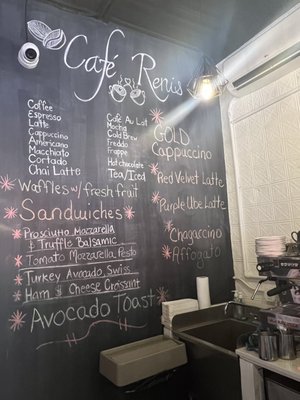 Café Renis
Coffee
Espresso
Latte
Cappuccino
Americano
Macchiato
Cortado
Chai Latte
Café Au Lait
Mocha
Cold Brew
Freddo
Frappe
Hot chocolate
Tea/Iced
GOLD
Cappuccino
Red Velvet Latte
Purple Ube Latte
Chagaccino
Affogato
Waffles w/ fresh fruit
Sandwiches
Prosciutto Mozzarella
& Truffle Balsamic
Tomato Mozzarella, Pesto
Turkey Avocado, Swiss
Ham & Cheese Croissant
Avocado Toast